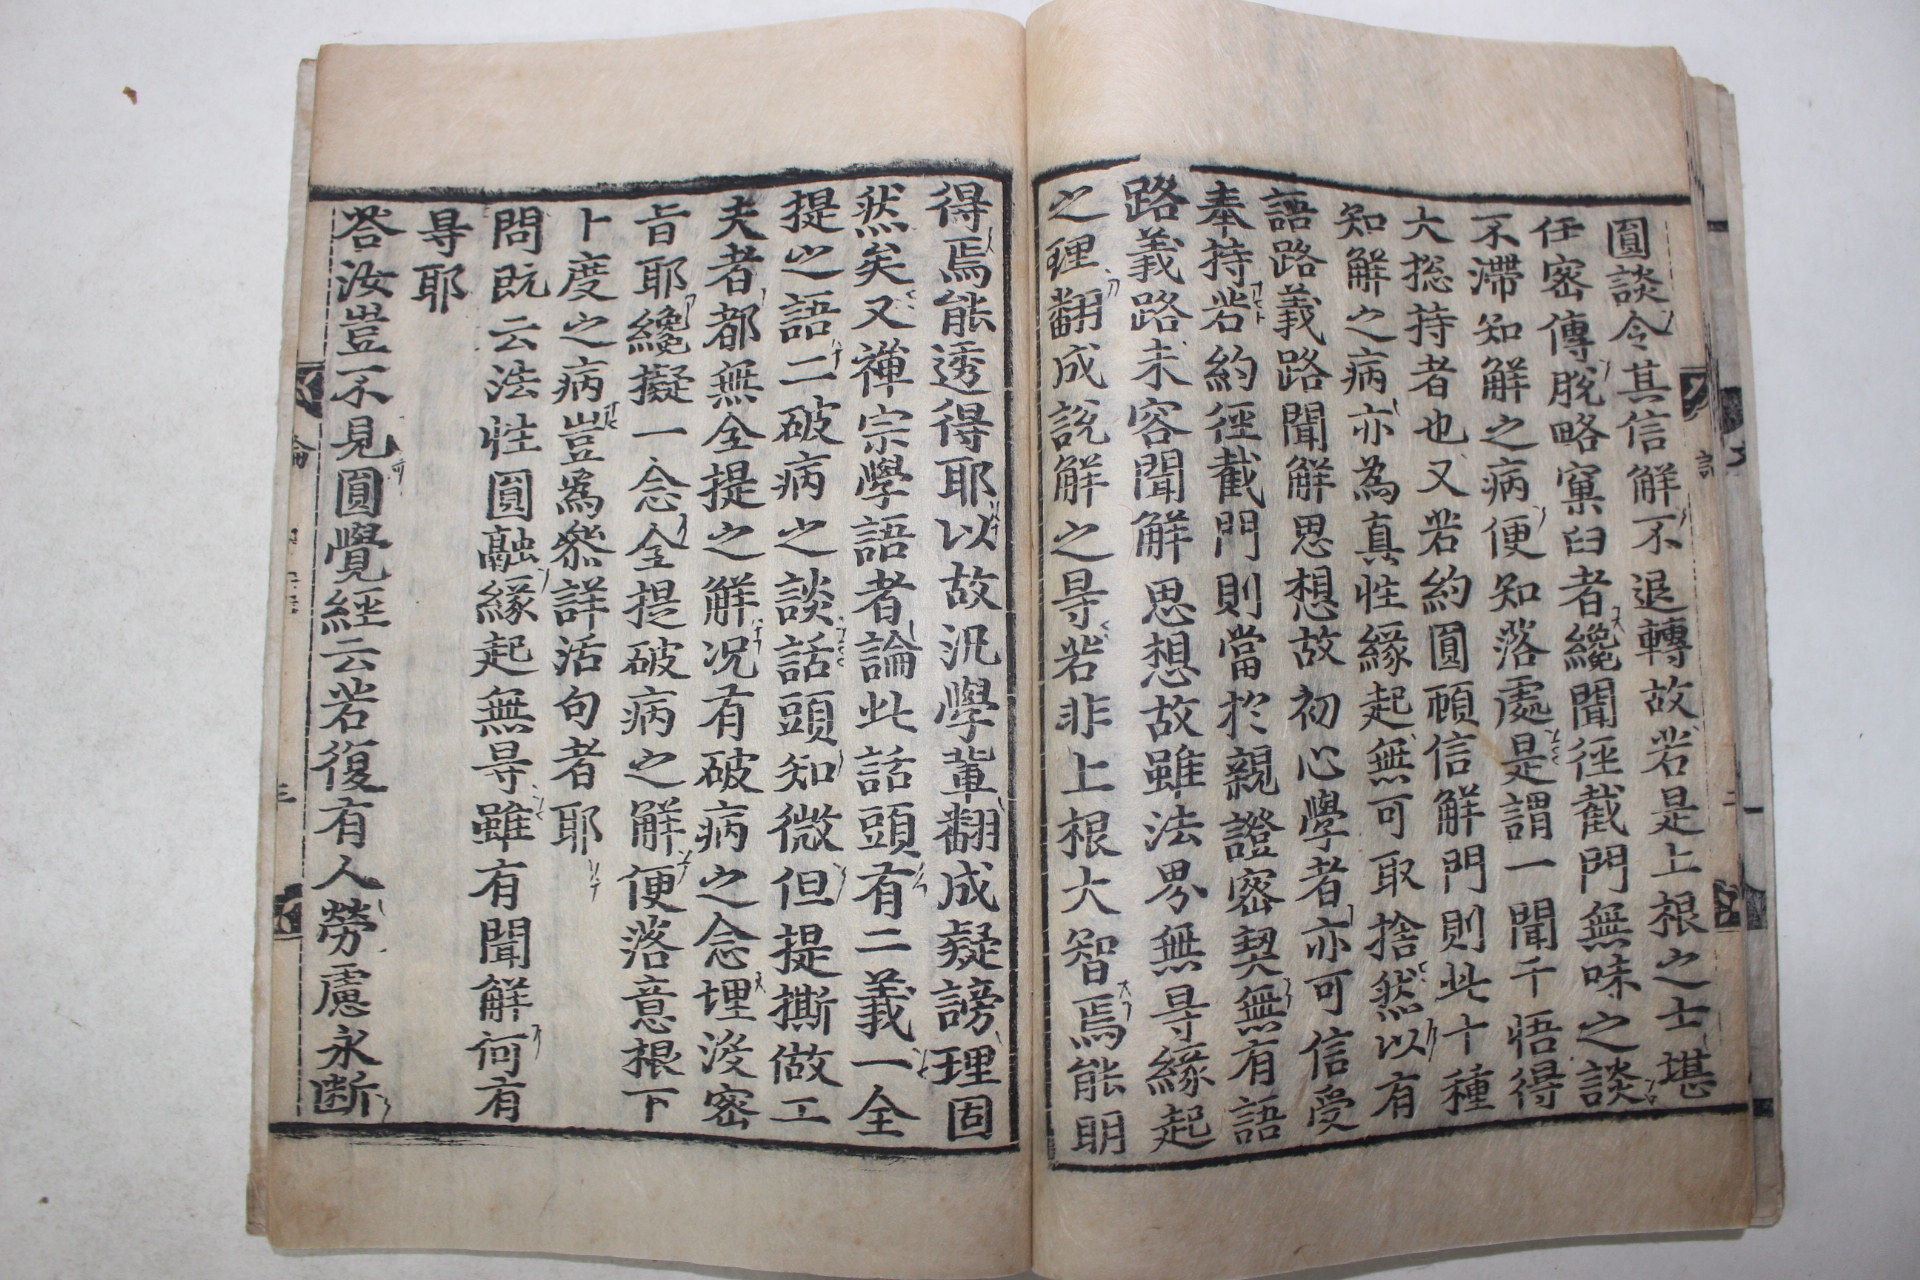 圓談令其信解不退轉故若是上根之士堪
任密傳脫略窠臼者纔聞徑截門無味之談
不滯知解之病便知落處是謂一聞千悟得
大揔持者也又若約圓頓信解門則此十種
知解之病亦為真性緣起無可取捨然以有
語路義路聞解思想故初心學者亦可信受
奉持若約徑截門則當於親證密契無有語
路義路未容聞解思想故雖法界無㝵緣起
之理翻成說解之㝵若非上根大智焉能明
得焉能透得耶以故汎學輩翻成疑謗理固
然矣又禪宗學語者論此話頭有二義一全
提之語二破病之談話頭知微但提撕做工
夫者都無全提之解况有破病之念埋沒密
旨耶纔擬一念全提破病之解便落意根下
卜度之病豈為叅詳活句者耶
問既云法性圓融緣起無㝵雖有聞解何有
㝵耶
答汝豈不見圓覺經云若復有人勞慮永斷
論
三